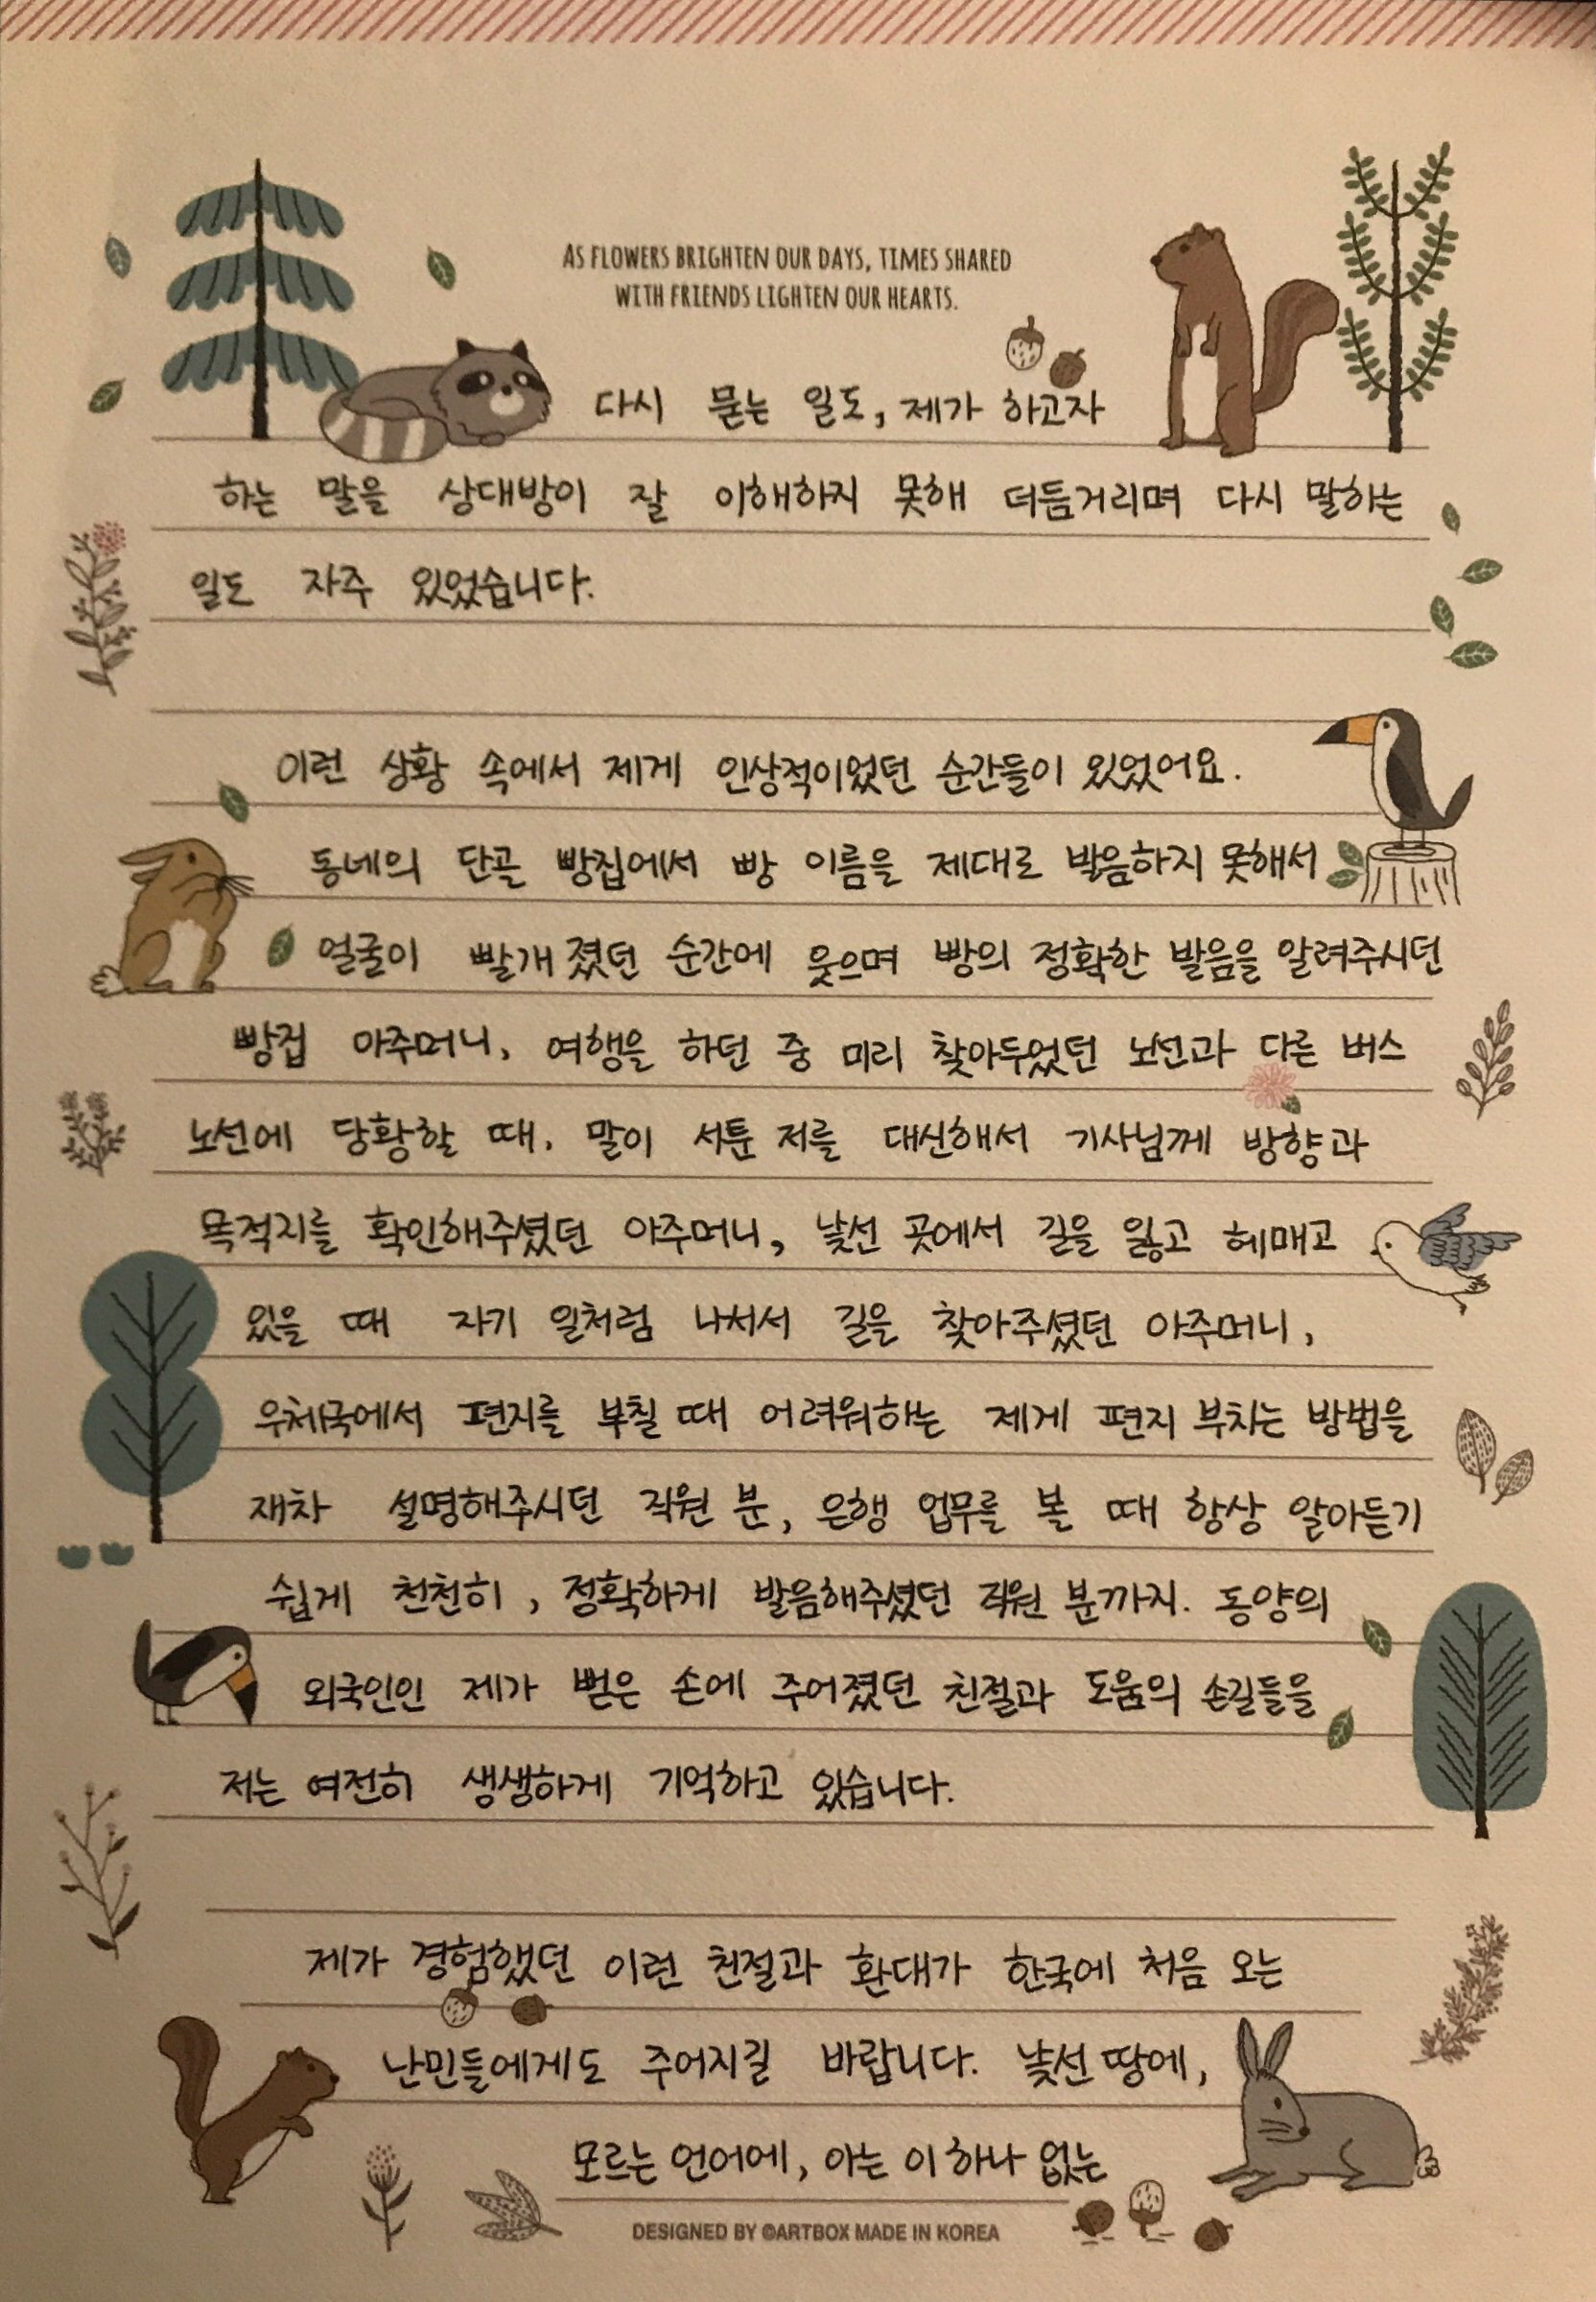 AS FLOWERS BRIGHTEN OUR DAYS, TIMES SHARED
WITH FRIENDS LIGHTEN OUR HEARTS.
다시 묻는 일도, 제가 하고자
하는 말을 상대방이 잘 이해하지 못해 더듬거리며 다시 말하는
일도 자주 있었습니다.
이런 상황 속에서 제게 인상적이었던 순간들이 있었어요.
동네의 단골 빵집에서 빵 이름을 제대로 발음하지 못해서
얼굴이 빨개졌던 순간에 웃으며 빵의 정확한 발음을 알려주시던
빵집 아주머니, 여행을 하던 중 미리 찾아두었던 노선과 다른 버스
노선에 당황할 때, 말이 서툰 저를 대신해서 기사님께 방향과
목적지를 확인해주셨던 아주머니, 낯선 곳에서 길을 잃고 헤매고
있을 때 자기 일처럼 나서서 길을 찾아주셨던 아주머니,
우체국에서 편지를 부칠 때 어려워하는 제게 편지 부치는 방법을
재차 설명해주시던 직원 분, 은행 업무를 볼 때 항상 알아듣기
쉽게 천천히, 정확하게 발음해주셨던 직원 분까지. 동양의
외국인인 제가 뻗은 손에 주어졌던 친절과 도움의 손길들을
저는 여전히 생생하게 기억하고 있습니다.
제가 경험했던 이런 친절과 환대가 한국에 처음 오는
난민들에게도 주어지길 바랍니다. 낯선 땅에,
모르는 언어에, 아는 이 하나 없는
DESIGNED BY ©ARTBOX MADE IN KOREA